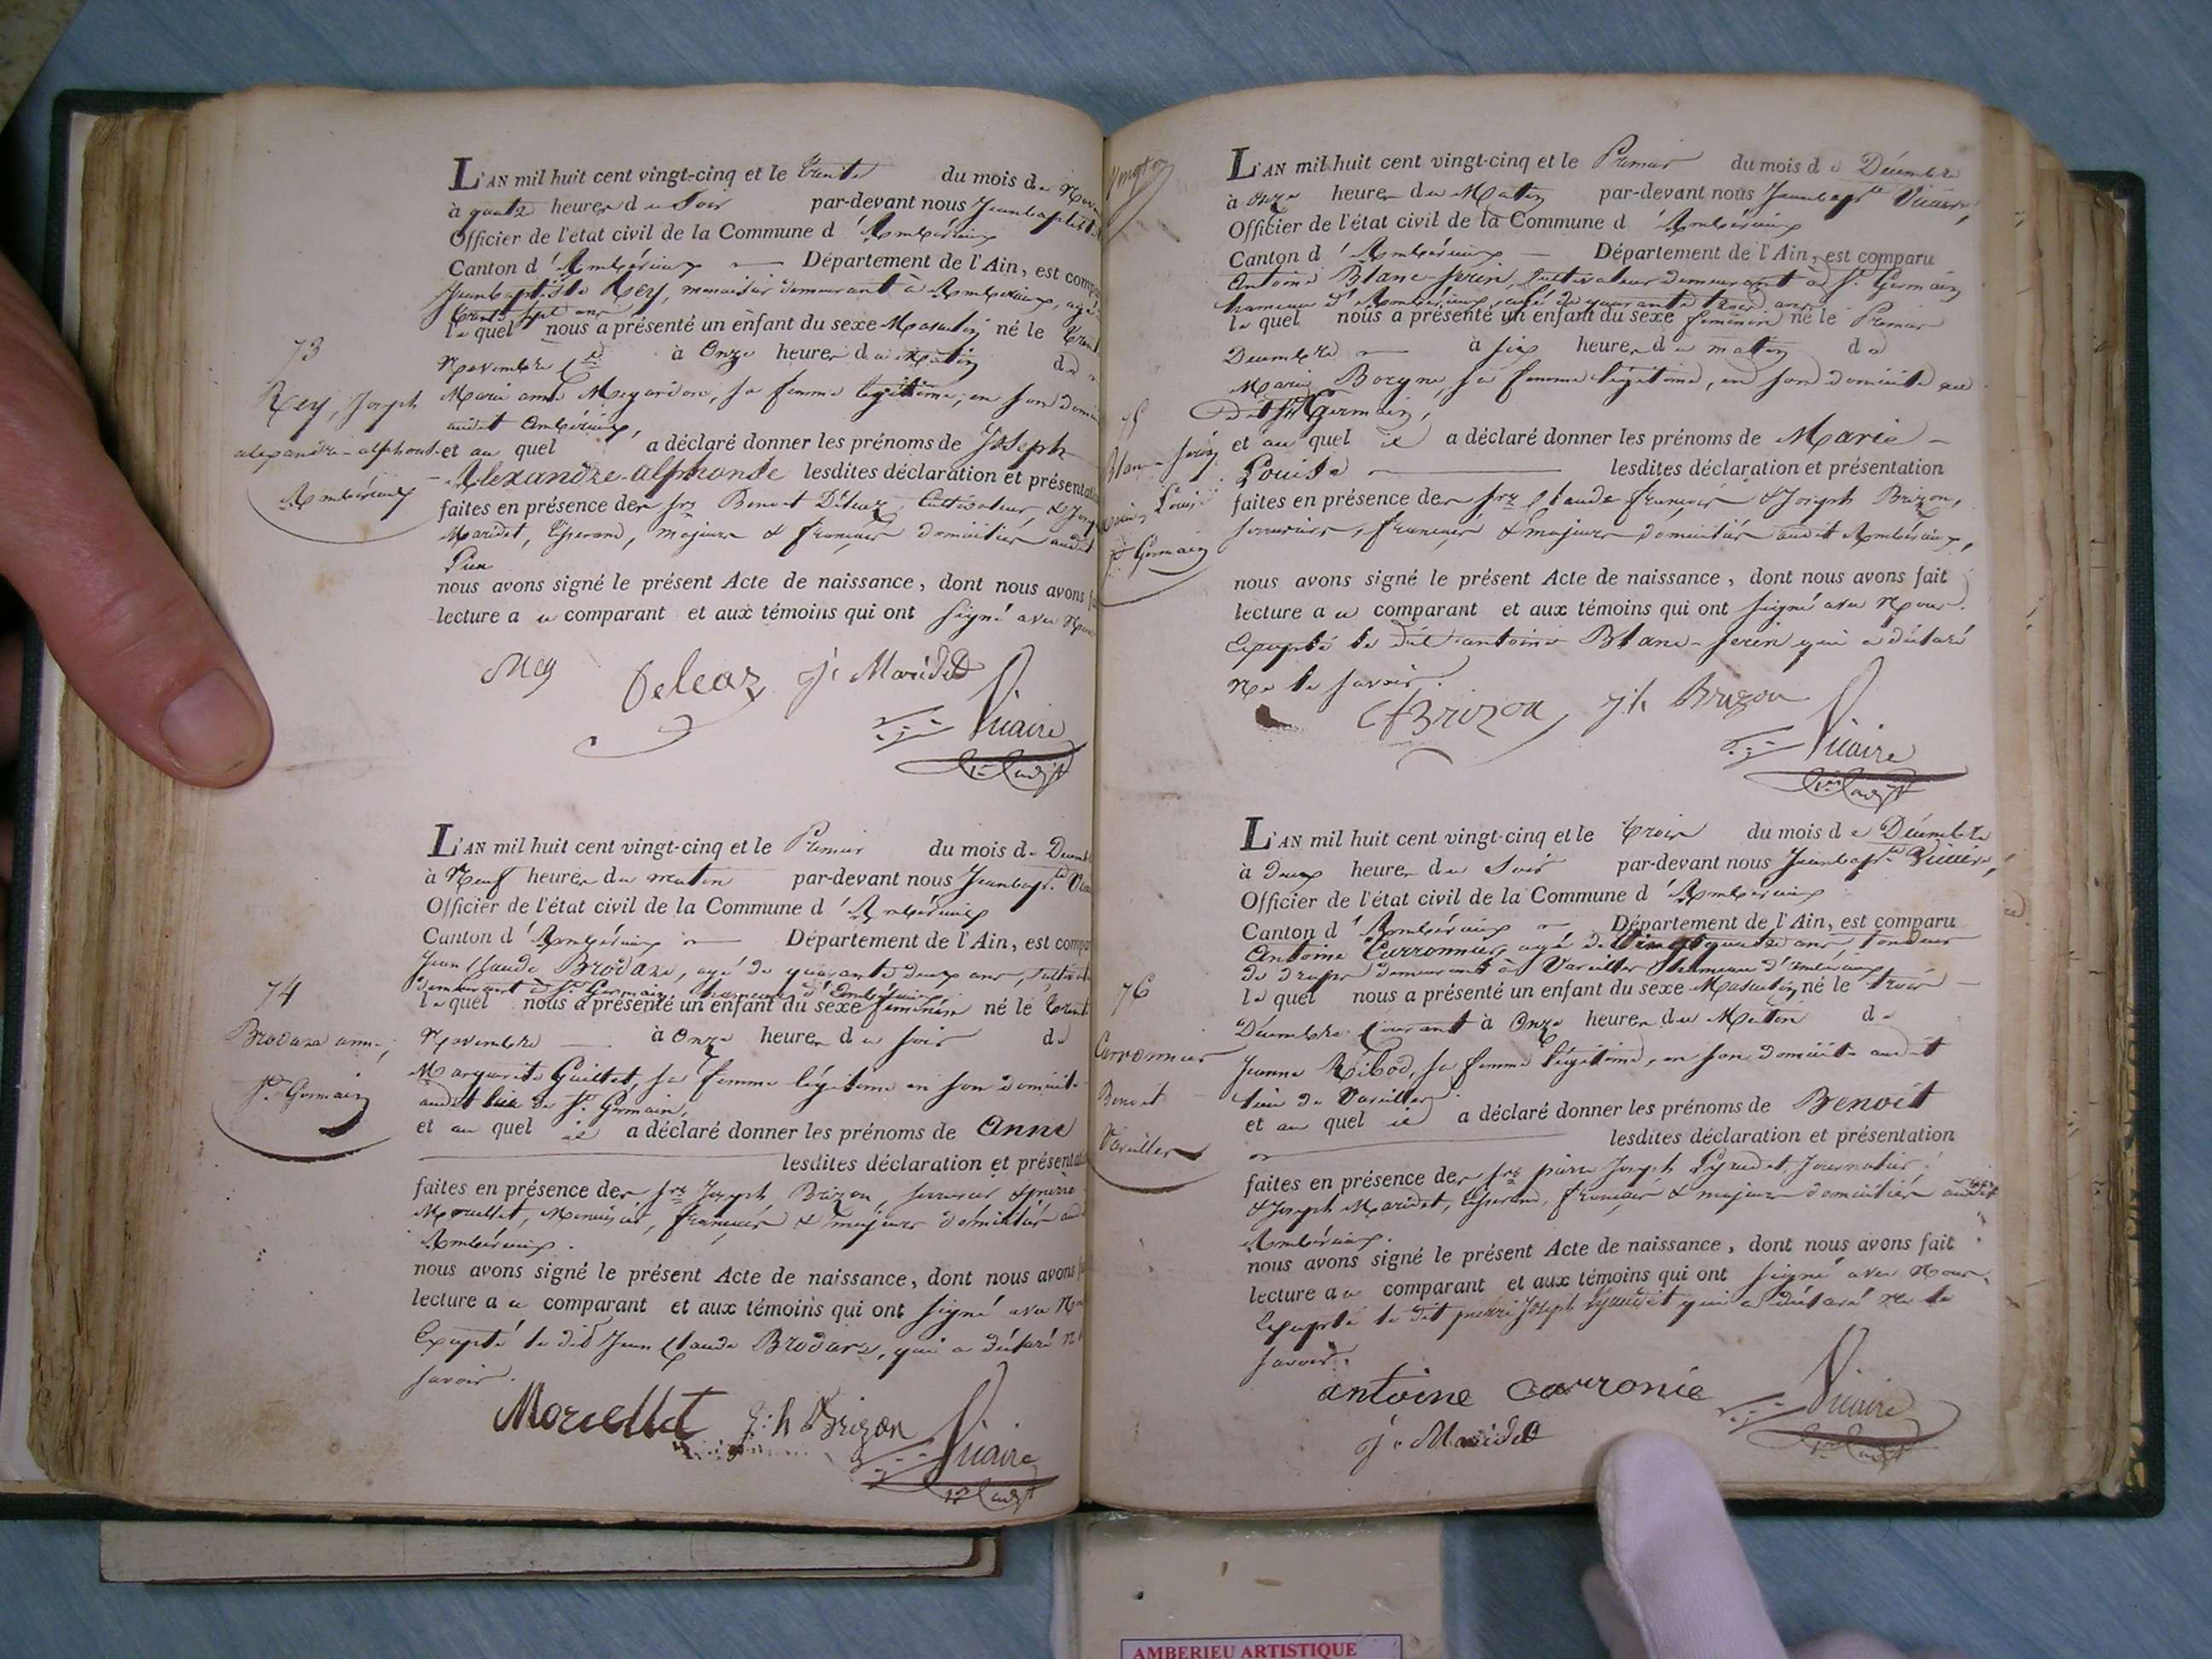 L'AN mil huit cent vingt-cinq et le trente du mois de
à quatre heures du Soir par-devant nous Jeanbaptiste
Officier de l'état civil de la Commune d'Ambérieux
Canton d'Ambérieux Département de l'Ain, est
Jeanbaptiste Rey, menuisier demeurant à Ambérieux, agé
trente sept ans
le quel nous a présenté un enfant du sexe Masculin né le
73
Novembre à Onze heures du Matin de
Rey, Joseph
Marie anne Meyardon, sa femme légitime, en son
audit Ambérieux,
alexandre-alphonse
et au quel a déclaré donner les prénoms de Joseph
Ambérieux
Alexandre-alphonse lesdites déclaration et
faites en présence des srs Benoit Déléaz, Cultivateur, &
Maridet, tisserand, majeurs & français domiciliés audit
Lieu
nous avons signé le présent Acte de naissance, dont nous avons
lecture au comparant et aux témoins qui ont signé avec
Rey Deleaz js Maridet
Vicaire
L'AN mil huit cent vingt-cinq et le Premier du mois de
à Neuf heures du matin par-devant nous Jeanbapte
Officier de l'état civil de la Commune d'Ambérieux
Canton d'Ambérieux Département de l'Ain, est
Jean Claude Brodare, agé de quarante deux ans,
demeurant à St. Germain, hameau d'Ambérieux
74
le quel nous a présenté un enfant du sexe féminin né le
Brodare anne,
Novembre à Onze heures du soir de
Marguerite Guillet, sa femme légitime en son domicile
St. Germain
audit lieu de St. Germain,
et au quel il a déclaré donner les prénoms de Anne
lesdites déclaration et
faites en présence des srs Joseph Brizon, serrurier & pierre
Morellet, Menuisier, français & majeurs domiciliés
Ambérieux.
nous avons signé le présent Acte de naissance, dont nous avons
lecture au comparant et aux témoins qui ont signé avec
Excepté le dit Jean Claude Brodare, qui a déclaré
savoir.
Morellet J:h Brizon
Vicaire
L'AN mil huit cent vingt-cinq et le Premier du mois de Décembre
à Onze heures du Matin par-devant nous Jeanbapte Vicaire,
Officier de l'état civil de la Commune d'Ambérieux
Canton d'Ambérieux Département de l'Ain, est comparu
Antoine Blanc-Serin, Cultivateur demeurant à St. Germain
hameau d'Ambérieux, agé de quarante trois ans
le quel nous a présenté un enfant du sexe féminin né le Premier
Décembre à six heures du matin de
Marie Borgne, sa femme légitime, en son domicile au
dit St. Germain,
et au quel il a déclaré donner les prénoms de Marie-
Blanc-Serin
Louise lesdites déclaration et présentation
Louise
faites en présence des srs Claude françois & Joseph Brizon,
serruriers, français & majeurs domiciliés audit Ambérieux,
St Germain
nous avons signé le présent Acte de naissance, dont nous avons fait
lecture au comparant et aux témoins qui ont signé avec Nous.
Excepté le dit antoine Blanc-serin qui a déclaré
Ne le savoir.
CfBrizon jh Brizon
Vicaire
L'AN mil huit cent vingt-cinq et le trois du mois de Décembre
à Deux heures du Soir par-devant nous Jeanbapte Vicaire,
Officier de l'état civil de la Commune d'Ambérieux
Canton d'Ambérieux Département de l'Ain, est comparu
Antoine Carronnier, agé de Vingt quatre ans, tondeur
de draps demeurant à Vareilles hameau d'ambérieux
76
le quel nous a présenté un enfant du sexe Masculin né le trois
Décembre Courant à Onze heures du Matin de
Carronnier
Jeanne Ribod, sa femme légitime, en son domicile audit
Benoit
lieu de Vareilles.
et au quel il a déclaré donner les prénoms de Benoit
Vareilles
lesdites déclaration et présentation
faites en présence des srs pierre Joseph Journalier,
& Joseph Maridet, tisserand, français & majeurs domiciliés audit
Ambérieux.
nous avons signé le présent Acte de naissance, dont nous avons fait
lecture au comparant et aux témoins qui ont signé avec Nous,
Excepté le dit pierre Joseph qui a déclaré ne le
savoir.
antoine carronie
Vicaire
js Maridet
AMBERIEU ARTISTIQUE